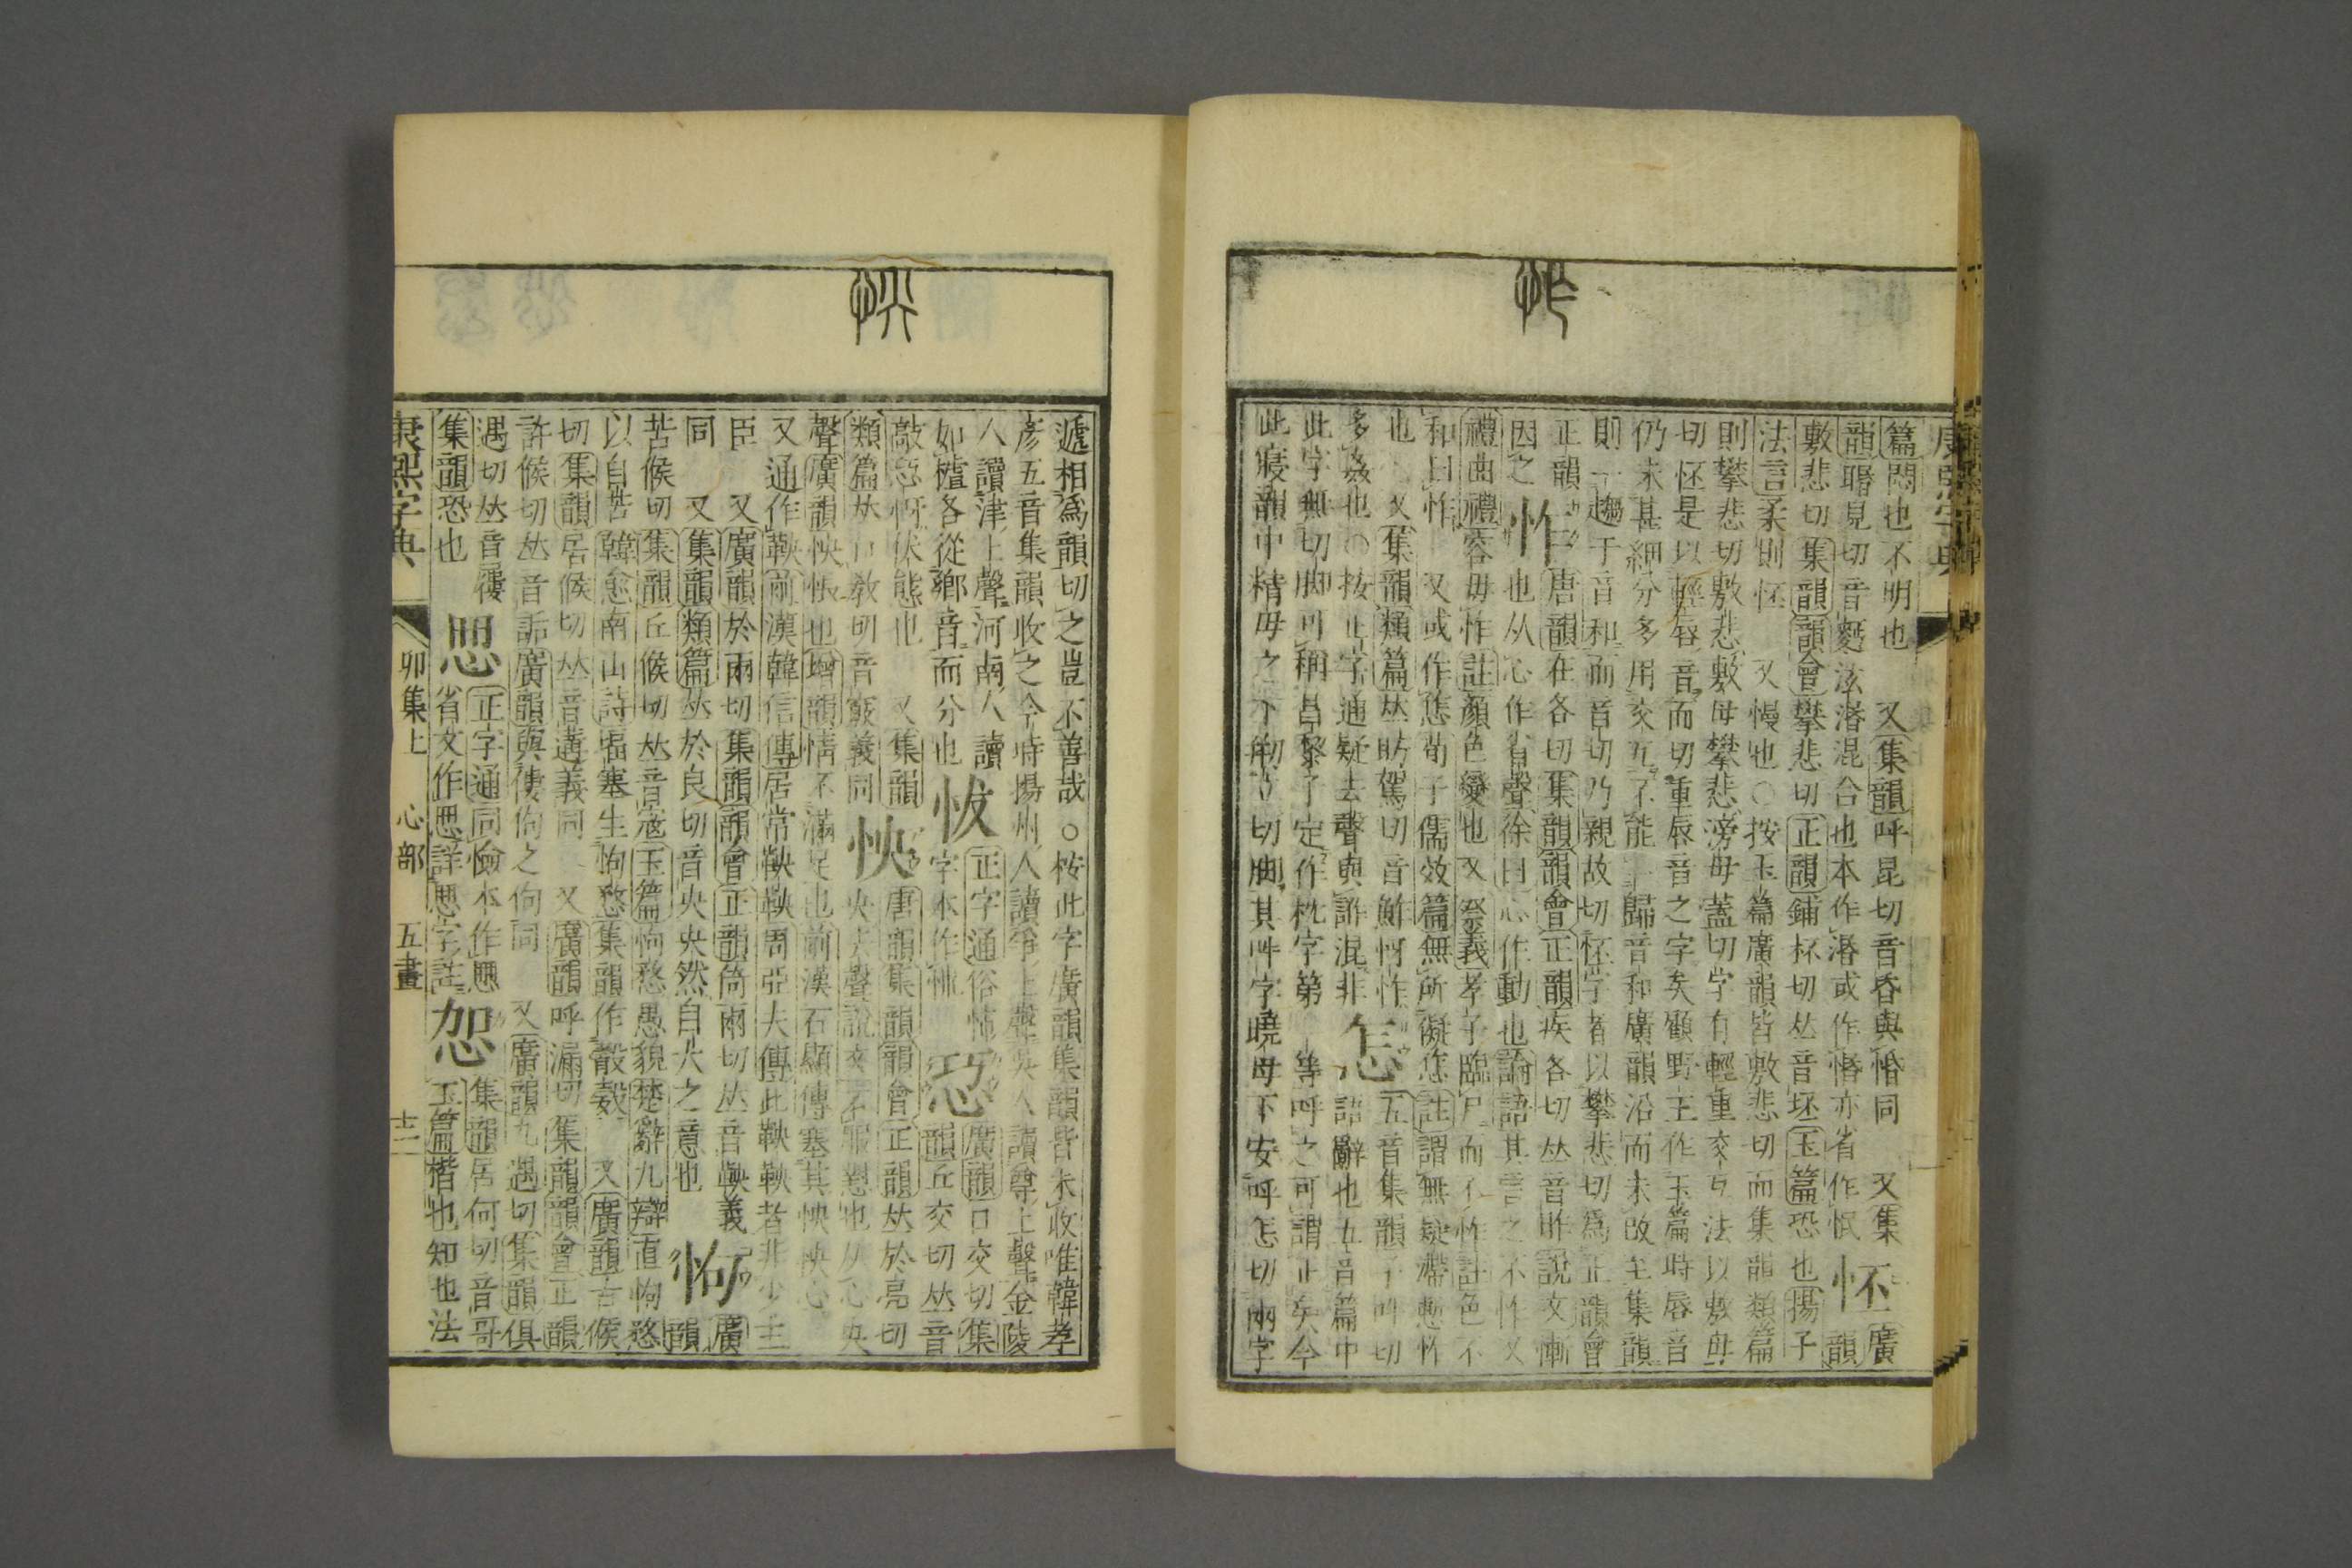 康熙字典
怍
篇悶也不明也 又集韻呼昆切音昏與惛同 又集 廣
韻見切音麪泫湣混合也本作湣或作惛亦省作怋 怌 韻
敷悲切集韻韻會攀悲切正韻鋪杯切𠀤音坯玉篇恐也揚子
法言柔則怌 又慢也○按玉篇廣韻皆敷悲切而集韻類篇
則攀悲切敷悲敷母攀悲滂母蓋切字有輕重交互法以敷母
切怌是以輕唇音而切重唇音之字矣顧野王作玉篇時唇音
仍未甚細分多用交互不能一歸音和廣韻沿而未改至集韻
則一趨于音和而音切乃親故切怌字者以攀悲切爲正韻會
正韻 唐韻在各切集韻韻會正韻疾各切𠀤音昨說文慚
因之 怍 也从心作省聲徐曰心作動也論語其言之不怍又
禮曲禮容毋怍註顏色變也又祭義孝子臨尸而不怍註色不
和曰怍 又或作㤰荀子儒效篇無所儗㤰註謂無疑滯慙怍
也 又集韻類篇𠀤助駕切音 㤉怍 五音集韻子吽切
多姦也○按正字通疑去聲與詐混非 怎 語辭也五音篇中
此字無切脚可稱昌黎子定作枕字第一等呼之可謂正矣今
此寢韻中精母之下 立切脚其吽字曉母下安呼怎切兩字
怏
遞相爲韻切之豈不善哉○按此字廣韻集韻皆未收唯韓孝
彥五音集韻收之今時揚州人讀爭上聲吳人讀尊上聲金陵
人讀津上聲河南人讀 正字通俗怖 廣韻口交切集
如樝各從鄉音而分也 字本作 㤍 韻丘交切𠀤音
敲㤍㤉伏態也 又集韻 唐韻集韻韻會正韻𠀤於亮切
類篇𠀤口敎切音竅義同 怏 央去聲說文不服懟也从心央
聲廣韻怏悵也增韻情不滿足也前漢石顯傳塞其怏怏心
又通作鞅前漢韓信傳居常鞅鞅周亞夫傳此鞅鞅者非少主
臣 又廣韻於兩切集韻韻會正韻倚兩切𠀤音鞅義 廣
同 又集韻類篇𠀤於良切音央央然自大之意也 怐 韻
苦候切集韻丘候切𠀤音寇玉篇怐愗愚貌楚辭九辯直怐愗
以自苦韓愈南山詩堛塞生怐愗集韻作 又廣韻古候
切集韻居候切𠀤音遘義同 又廣韻呼漏切集韻韻會正韻
許候切𠀤音詬廣韻與 佝之佝同 又廣韻九遇切集韻俱
遇切𠀤音屨 正字通同憸本作 集韻居何切音哥
集韻恐也 省文作 詳 字註 㤎 玉篇楷也知也法
康熙字典 卯集上 心部 五畫 十二